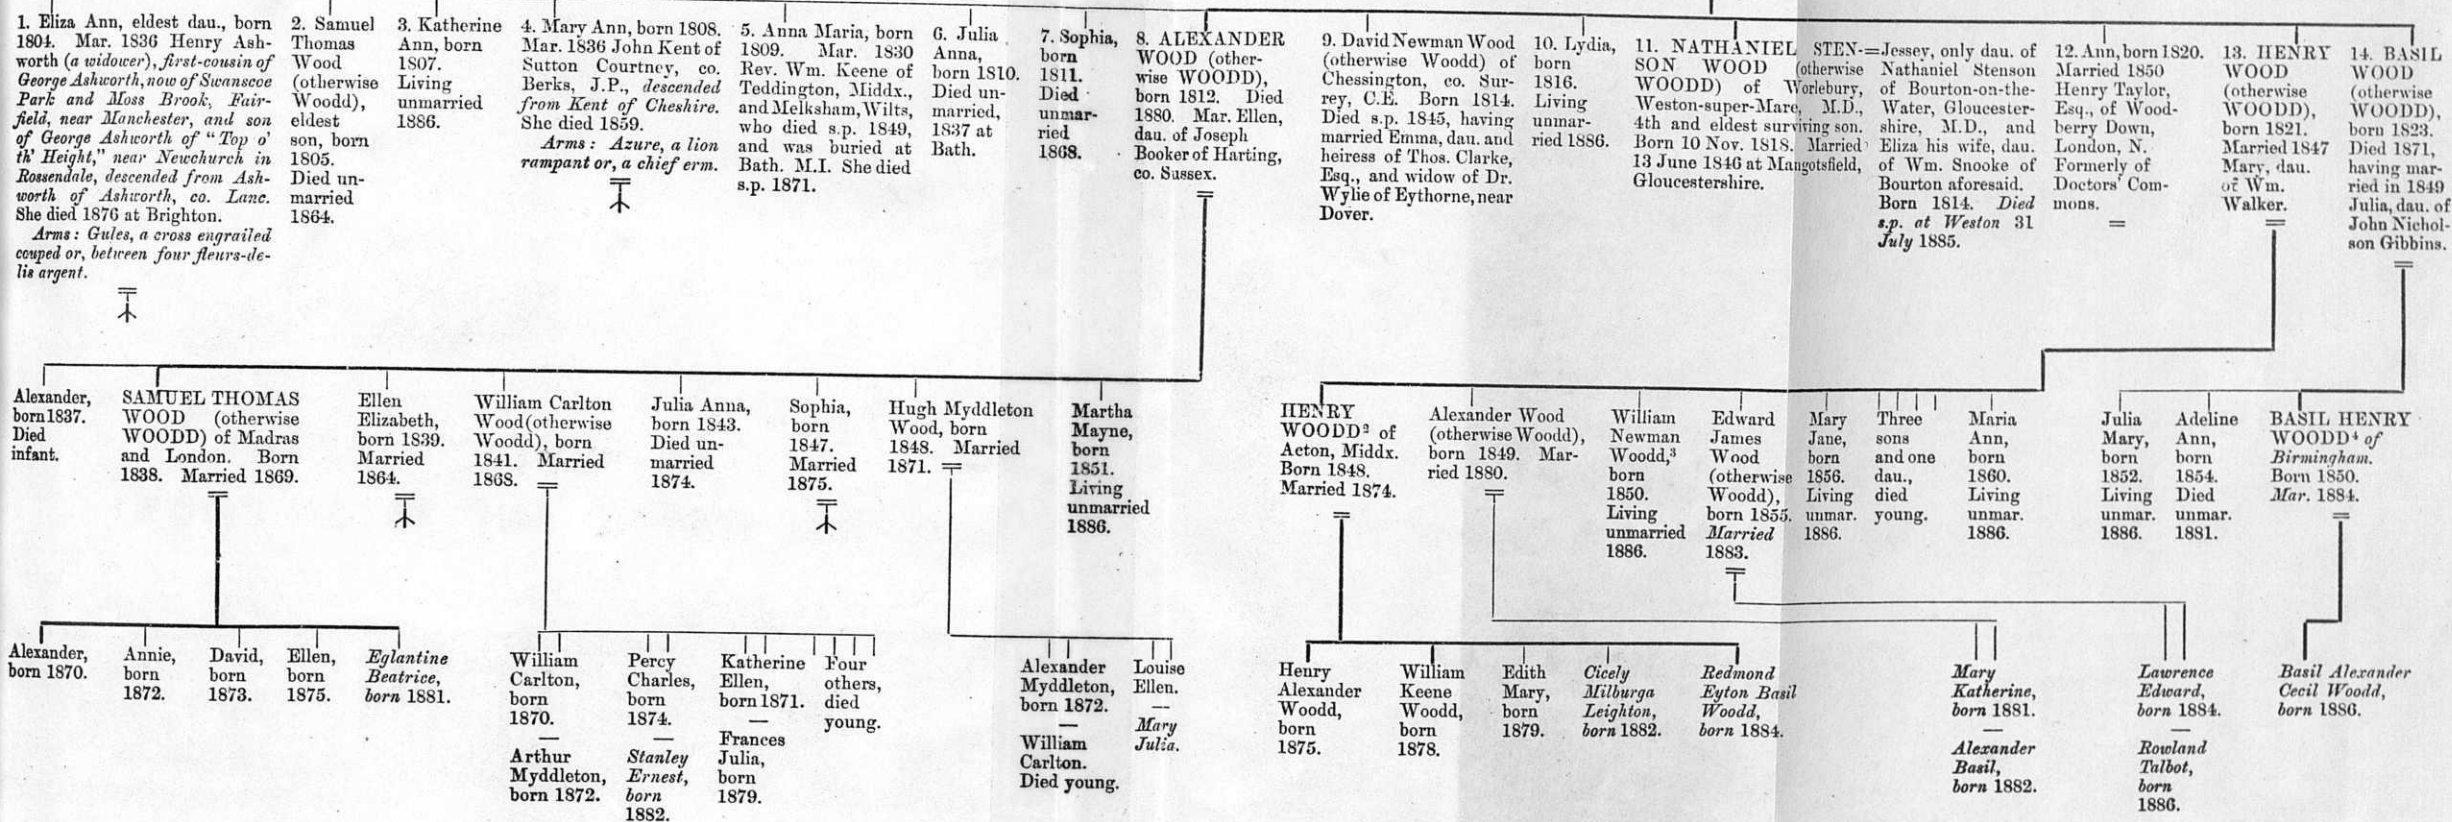 1. Eliza Ann, eldest dau., born
1804. Mar. 1836 Henry Ash-
worth (a widower), first-cousin of
George Ashworth, now of Swanscoe
Park and Moss Brook, Fair-
field, near Manchester, and son
of George Ashworth of "Top o'
th' Height," near Newchurch in
Rossendale, descended from Ash-
worth of Ashworth, co. Lanc.
She died 1876 at Brighton.
Arms: Gules, a cross engrailed
couped or, between four fleurs-de-
lis argent.
2. Samuel
Thomas
Wood
(otherwise
Woodd),
eldest
son, born
1805.
Died un-
married
1864.
3. Katherine
Ann, born
1807.
Living
unmarried
1886.
4. Mary Ann, born 1808.
Mar. 1836 John Kent of
Sutton Courtney, co.
Berks, J.P., descended
from Kent of Cheshire.
She died 1859.
Arms: Azure, a lion
rampant or, a chief erm.
5. Anna Maria, born
1809. Mar. 1830
Rev. Wm. Keene of
Teddington, Middx.,
and Melksham, Wilts,
who died s.p. 1849,
and was buried at
Bath. M.I. She died
s.p. 1871.
6. Julia
Anna,
born 1810.
Died un-
married,
1837 at
Bath.
7. Sophia,
born
1811.
Died
unmar-
ried
1868.
8. ALEXANDER
WOOD (other-
wise WOODD),
born 1812. Died
1880. Mar. Ellen,
dau. of Joseph
Booker of Harting,
co. Sussex.
9. David Newman Wood
(otherwise Woodd) of
Chessington, co. Sur-
rey, C.E. Born 1814.
Died s.p. 1845, having
married Emma, dau. and
heiress of Thos. Clarke,
Esq., and widow of Dr.
Wylie of Eythorne, near
Dover.
10. Lydia,
born
1816.
Living
unmar-
ried 1886.
11. NATHANIEL STEN-
SON WOOD (otherwise
WOODD) of Worlebury,
Weston-super-Mare, M.D.,
4th and eldest surviving son.
Born 10 Nov. 1818. Married
13 June 1846 at Mangotsfield,
Gloucestershire.
=Jessey, only dau. of
Nathaniel Stenson
of Bourton-on-the-
Water, Gloucester-
shire, M.D., and
Eliza his wife, dau.
of Wm. Snooke of
Bourton aforesaid.
Born 1814. Died
s.p. at Weston 31
July 1885.
12. Ann, born 1820.
Married 1850
Henry Taylor,
Esq., of Wood-
berry Down,
London, N.
Formerly of
Doctors' Com-
mons.
13. HENRY
WOOD
(otherwise
WOODD),
born 1821.
Married 1847
Mary, dau.
of Wm.
Walker.
14. BASIL
WOOD
(otherwise
WOODD),
born 1823.
Died 1871,
having mar-
ried in 1849
Julia, dau. of
John Nichol-
son Gibbins.
Alexander,
born 1837.
Died
infant.
SAMUEL THOMAS
WOOD (otherwise
WOODD) of Madras
and London. Born
1838. Married 1869.
Ellen
Elizabeth,
born 1839.
Married
1864.
William Carlton
Wood (otherwise
Woodd), born
1841. Married
1868.
Julia Anna,
born 1843.
Died un-
married
1874.
Sophia,
born
1847.
Married
1875.
Hugh Myddleton
Wood, born
1848. Married
1871.
Martha
Mayne,
born
1851.
Living
unmarried
1886.
HENRY
WOODD² of
Acton, Middx.
Born 1848.
Married 1874.
Alexander Wood
(otherwise Woodd),
born 1849. Mar-
ried 1880.
William
Newman
Woodd,³
born
1850.
Living
unmarried
1886.
Edward
James
Wood
(otherwise
Woodd),
born 1855.
Married
1883.
Mary
Jane,
born
1856.
Living
unmar.
1886.
Three
sons
and one
dau.,
died
young.
Maria
Ann,
born
1860.
Living
unmar.
1886.
Julia
Mary,
born
1852.
Living
unmar.
1886.
Adeline
Ann,
born
1854.
Died
unmar.
1881.
BASIL HENRY
WOODD⁴ of
Birmingham.
Born 1850.
Mar. 1884.
Alexander,
born 1870.
Annie,
born
1872.
David,
born
1873.
Ellen,
born
1875.
Eglantine
Beatrice,
born 1881.
William
Carlton,
born
1870.
—
Arthur
Myddleton,
born 1872.
Percy
Charles,
born
1874.
—
Stanley
Ernest,
born
1882.
Katherine
Ellen,
born 1871.
—
Frances
Julia,
born
1879.
Four
others,
died
young.
Alexander
Myddleton,
born 1872.
—
William
Carlton.
Died young.
Louise
Ellen.
—
Mary
Julia.
Henry
Alexander
Woodd,
born
1875.
William
Keene
Woodd,
born
1878.
Edith
Mary,
born
1879.
Cicely
Milburga
Leighton,
born 1882.
Redmond
Eyton Basil
Woodd,
born 1884.
Mary
Katherine,
born 1881.
—
Alexander
Basil,
born 1882.
Lawrence
Edward,
born 1884.
—
Rowland
Talbot,
born
1886.
Basil Alexander
Cecil Woodd,
born 1886.